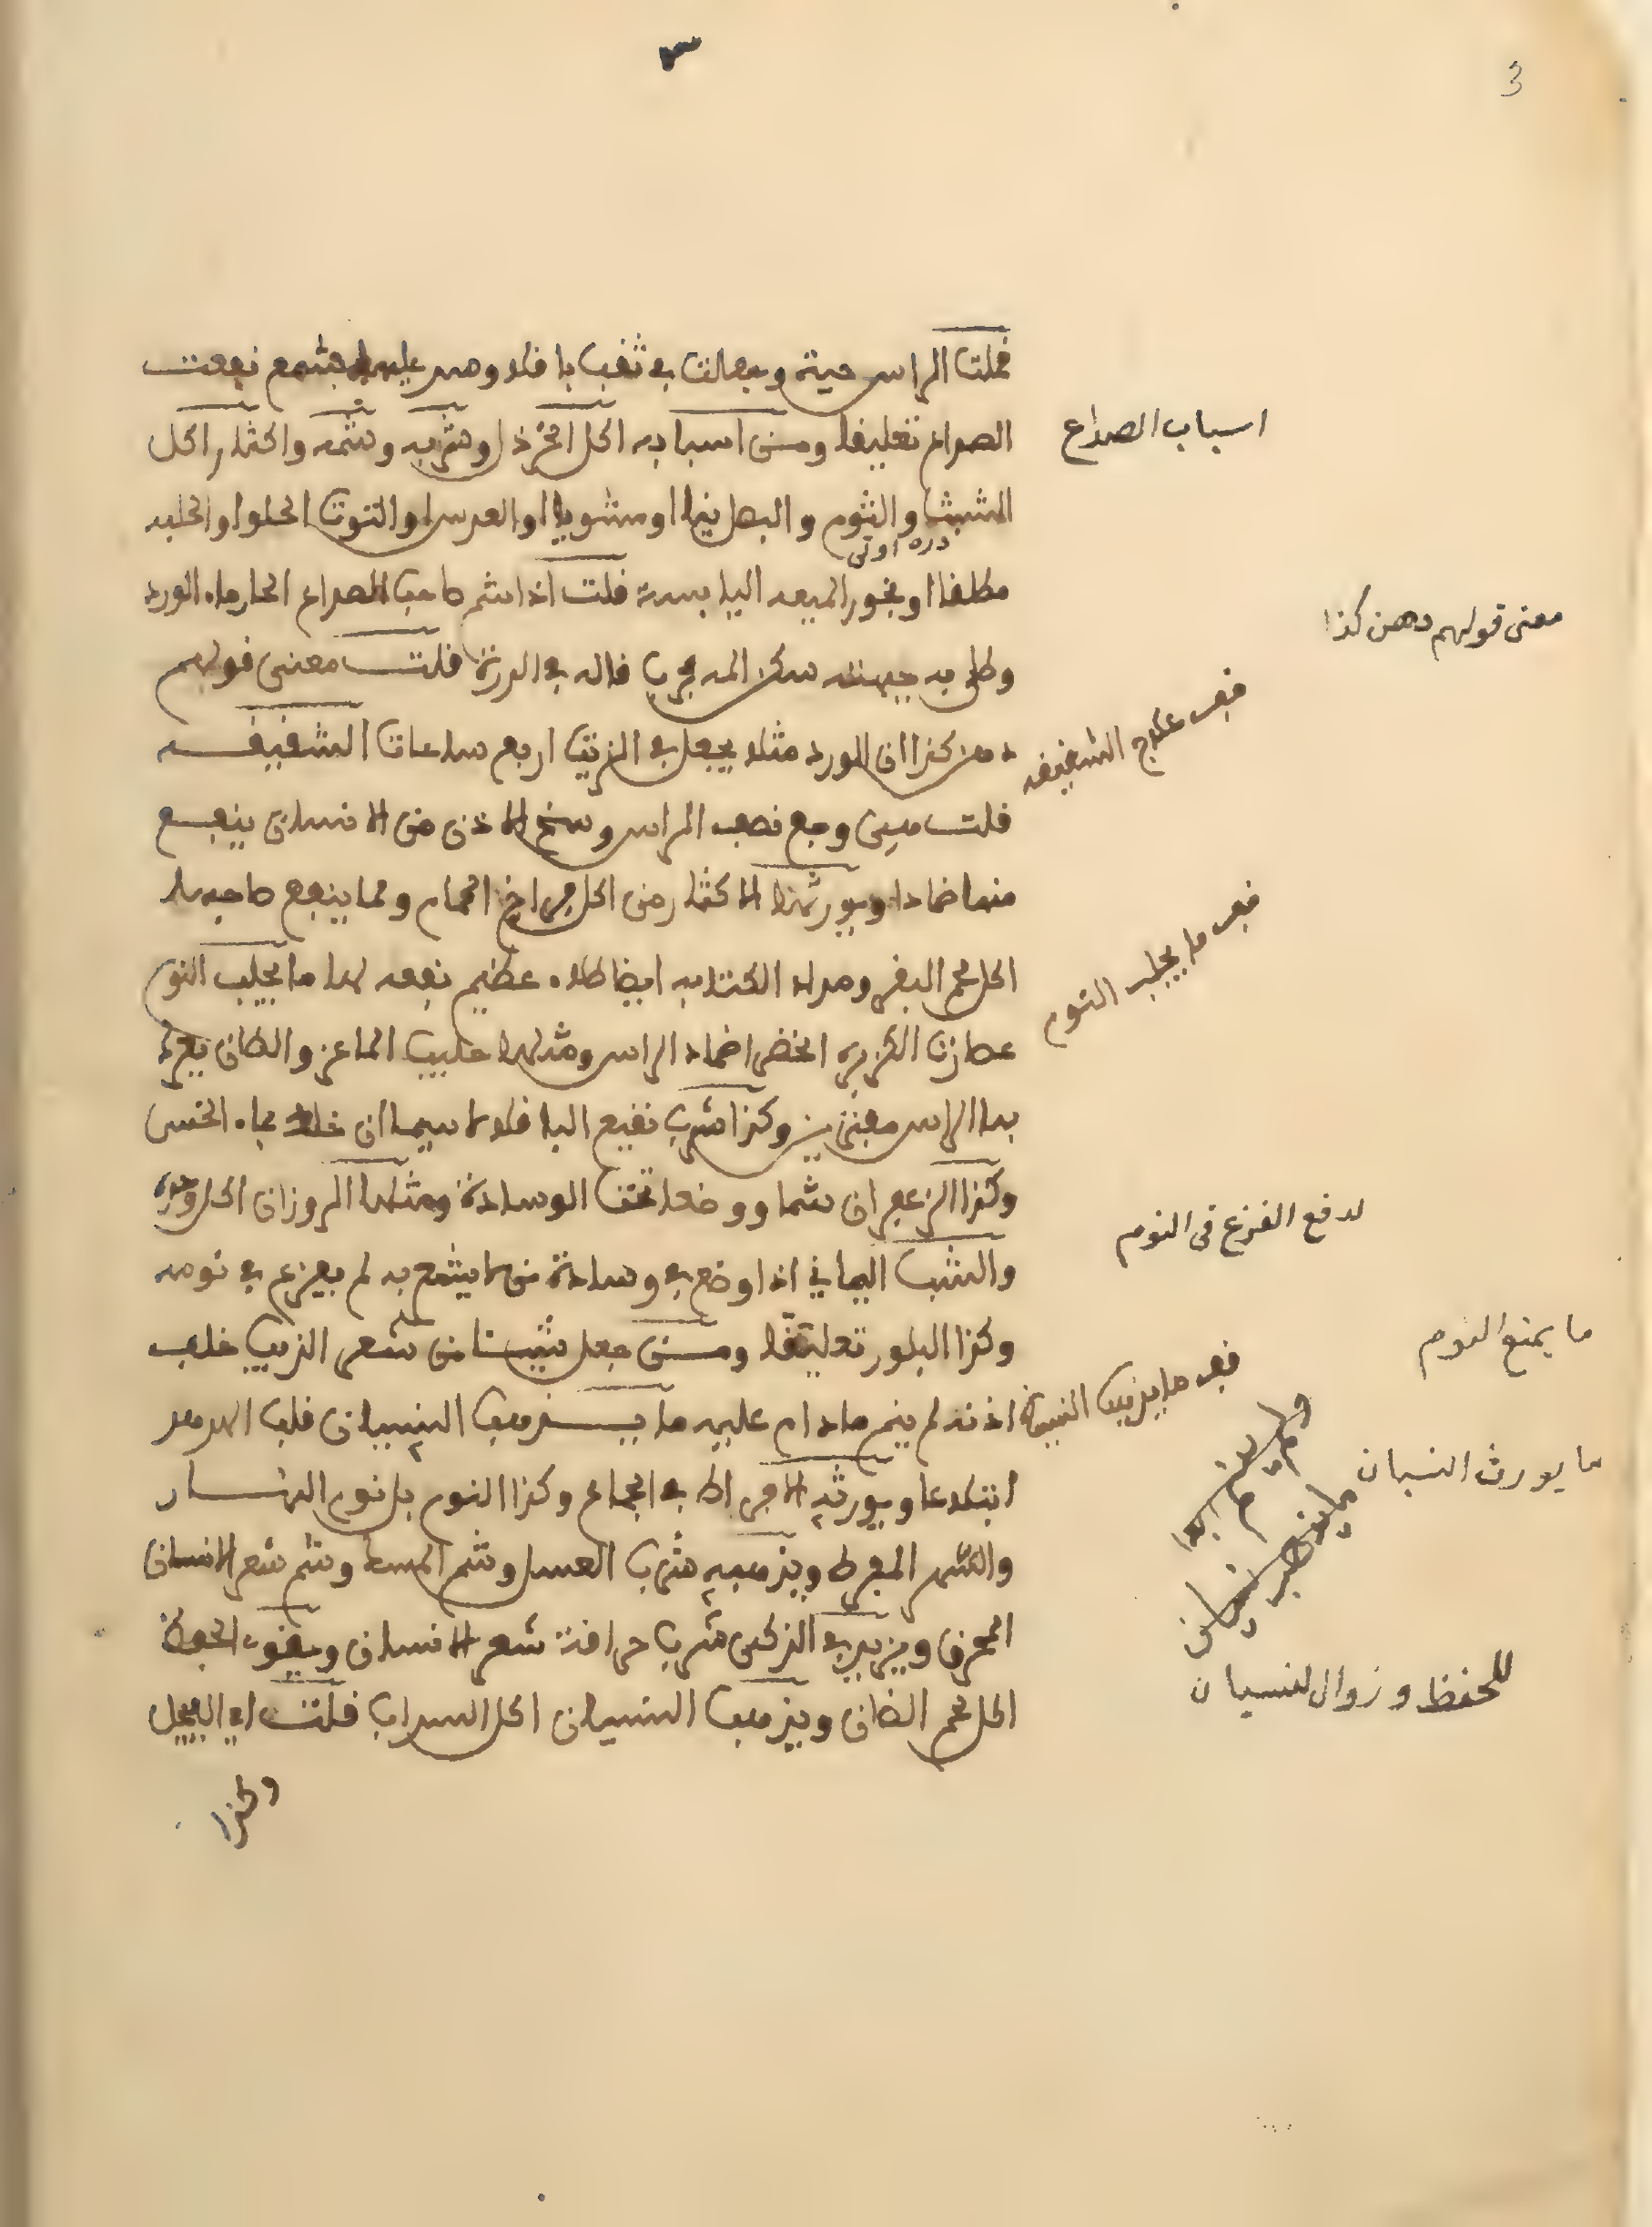 ٣
3
قملة الراس حية وجعلت في ثقب باقلا وسد عليها بشمع نفعت
الصداع تعليقا ومن اسبابه اكل الخردل وشربه وشمه واكثار اكل
الشبث والثوم والبصل نيا او مشويا او العدس او التوت الحلو او الحلبه
مطلقا او بخور الميعه اليابسة قلت اذا شم صاحب الصداع الحار ماء الورد
وطلى به جبهته سكن المه مجرب قاله في الدرة قلت معنى قولهم
دهن كذا ان الورد مثلا يجعل في الزيت اربع ساعات الشقيقه
قلت هي وجع نصف الراس وسخ الاذن من الانسان ينفع
منها ضمادا ويورثها الاكثار من اكل فراخ الحمام ومما ينفع صاحبها
اكل لحم البقر ومداد الكتابه ايضا طلاء عظيم نفعه لها ما يجلب النوم
عصارة الكزبره الخضرا ضماد الراس ومثلها حليب الماعز والضان يعرك
بها الراس وكذا شرب نقيع الباقلا لا سيما ان خلط بماء الخس
وكذا الزعفران شما ووضعا تحت الوسادة ومثلها
والشب اليماني اذا وضع في وسادة من لا يشعر به لم يفزع في نومه
وكذا البلور تعليقا ومن جعل شيئا من شعر الذيب خلف
اذنه لم ينم ما دام عليه ما يذهب النسيان قلب الهدهد
ابتلاعا ويورثه الافراط في الجماع وكذا النوم بل نوم النهار
والسهر المفرط ويذهبه شرب العسل وشم المسك وشم شعر الانسان
المحرق ويزيد في الذكى شرب حراقة شعر الانسان ويقوى الحفظ
اكل لحم الضان ويذهب النسيان اكل السداب قلت اي الفيجل
وكذا
اسباب الصداع
معنى قولهم دهن كذا
قف علاج الشقيقه
قف ما يجلب النوم
لدفع الفزع فى النوم
ما يمنع النوم
قف ما يذهب النسيان
ما يورث النسيان
للحفظ وزوال لنسيان